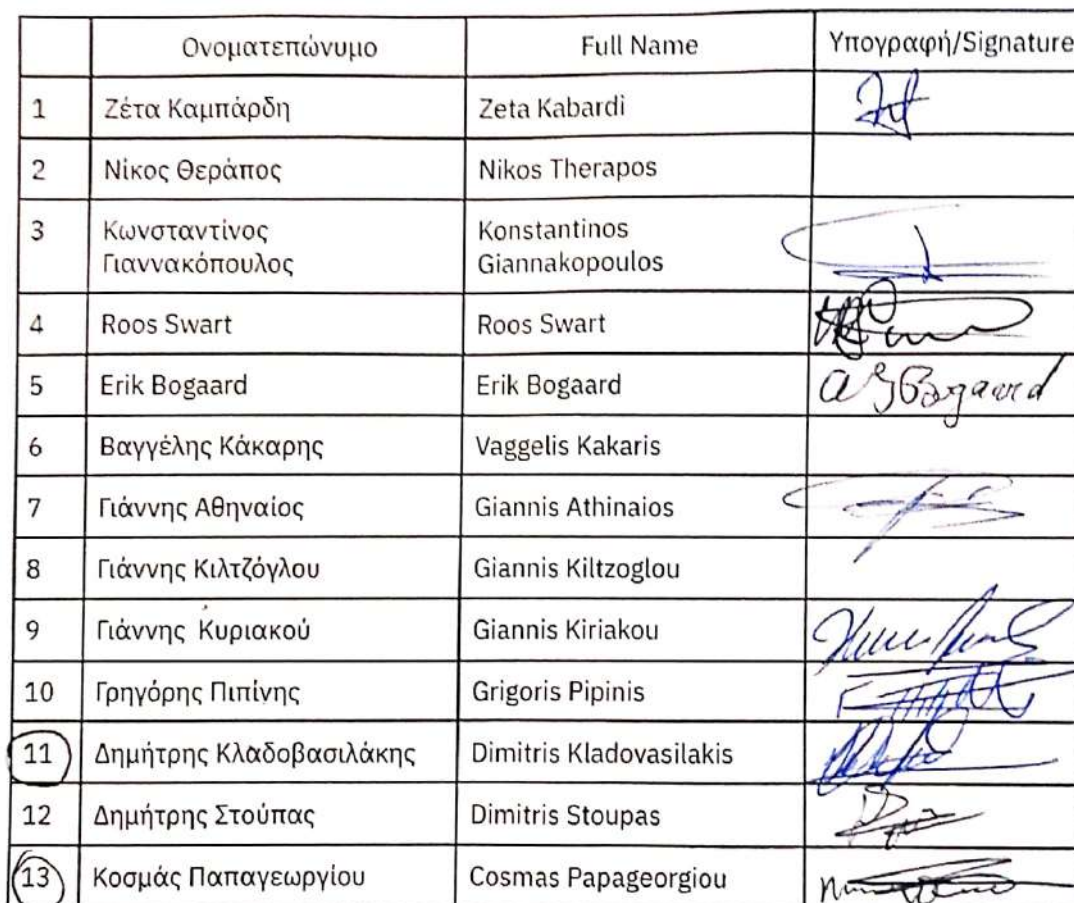 Ονοματεπώνυμο Full Name Υπογραφή/Signature
1 Ζέτα Καμπάρδη Zeta Kabardi
2 Νίκος Θεράπος Nikos Therapos
3 Κωνσταντίνος Konstantinos
Γιαννακόπουλος Giannakopoulos
4 Roos Swart Roos Swart
5 Erik Bogaard Erik Bogaard Bogaard
6 Βαγγέλης Κάκαρης Vaggelis Kakaris
7 Γιάννης Αθηναίος Giannis Athinaios
8 Γιάννης Κιλτζόγλου Giannis Kiltzoglou
9 Γιάννης Κυριακού Giannis Kiriakou
10 Γρηγόρης Πιπίνης Grigoris Pipinis
11 Δημήτρης Κλαδοβασιλάκης Dimitris Kladovasilakis
12 Δημήτρης Στούπας Dimitris Stoupas
13 Κοσμάς Παπαγεωργίου Cosmas Papageorgiou